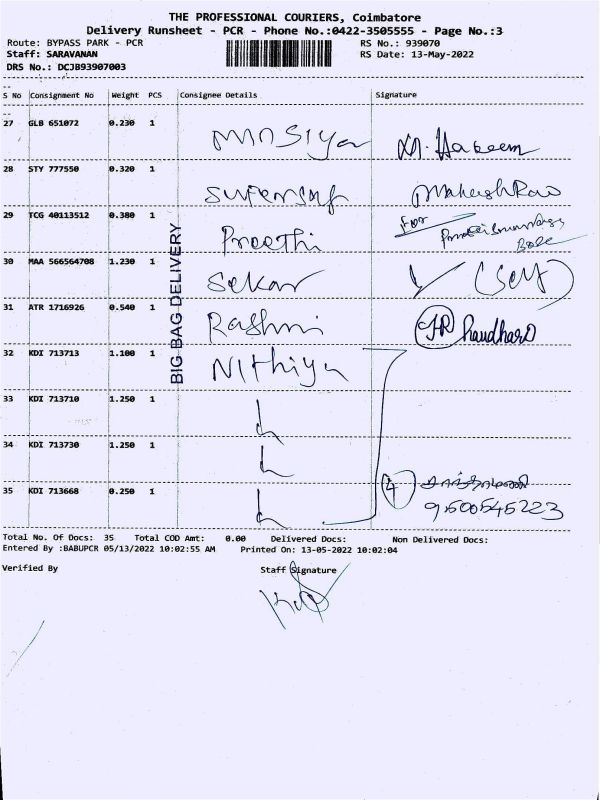 THE PROFESSIONAL COURIERS, Coimbatore
Delivery Runsheet - PCR - Phone No.:0422-3505555 - Page No.:3
Route: BYPASS PARK - PCR RS No.: 939070
Staff: SARAVANAN RS Date: 13-May-2022
DRS No.: DCJB93907003
S No Consignment No Weight PCS Consignee Details Signature
27 GLB 651072 0.230 1 Hakeem
28 STY 777550 0.320 1 Mahesh Rao
29 TCG 40113512 0.380 1 Preethi for
30 MAA 566564708 1.230 1 Sekar (Self)
31 ATR 1716926 0.540 1 Rashmi Chaudhard
32 KDI 713713 1.100 1 Nithiya
33 KDI 713710 1.250 1
34 KDI 713730 1.250 1
35 KDI 713668 0.250 1 4
9500545223
BIG BAG DELIVERY
Total No. Of Docs: 35 Total COD Amt: 0.00 Delivered Docs: Non Delivered Docs:
Entered By :BABUPCR 05/13/2022 10:02:55 AM Printed On: 13-05-2022 10:02:04
Verified By Staff Signature